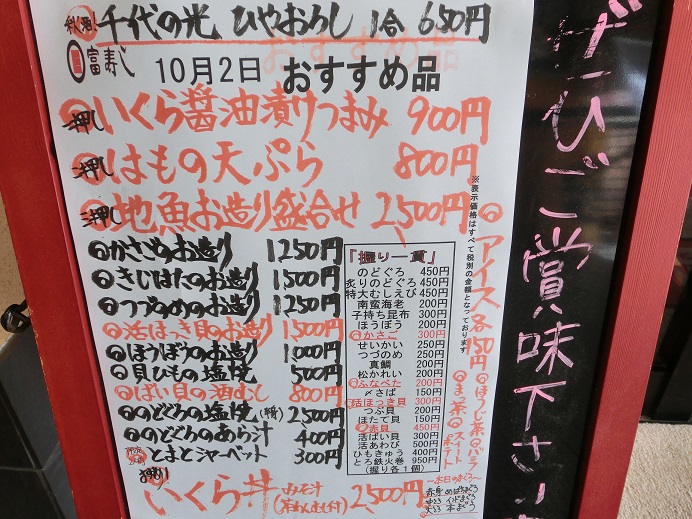 秋酒 千代の光 ひやおろし 1合 650円
富寿し
10月2日 おすすめ品
一押し いくら醤油漬けつまみ 900円
二押し はもの天ぷら 800円
三押し 地魚お造り盛合せ 2,500円
かさごのお造り 1250円
きじはたのお造り 1500円
つづのめのお造り 1250円
活ほっき貝のお造り 1,500円
ほうぼうのお造り 1,000円
貝ひもの塩焼 500円
ばい貝の酒むし 800円
のどぐろの塩焼 2,500円
のどぐろのあら汁 400円
とまとシャーベット 300円
いくら丼 みそ汁 2,500円
(茶わんむし付)
「握り一貫」
のどぐろ 450円
炙りのどぐろ 450円
特大むしえび 450円
南蛮海老 200円
子持ち昆布 300円
ほうぼう 200円
かさご 300円
せいかい 250円
つづのめ 250円
真鯛 200円
松かれい 200円
ふなべた 200円
〆さば 150円
活ほっき貝 300円
つぶ貝 200円
ほたて貝 150円
赤貝 450円
活ばい貝 300円
活あわび 500円
ひもきゅう 300円
とろ鉄火巻 950円
(握り各1個)
※表示価格はすべて税別の金額となっております
アイス各150円
ほうじ茶 バニラ
まっ茶 スイートポテト
〜本日のまぐろ〜
赤身 めばちまぐろ
中とろ インドまぐろ
大とろ 本まぐろ
ぜひご賞味下さい